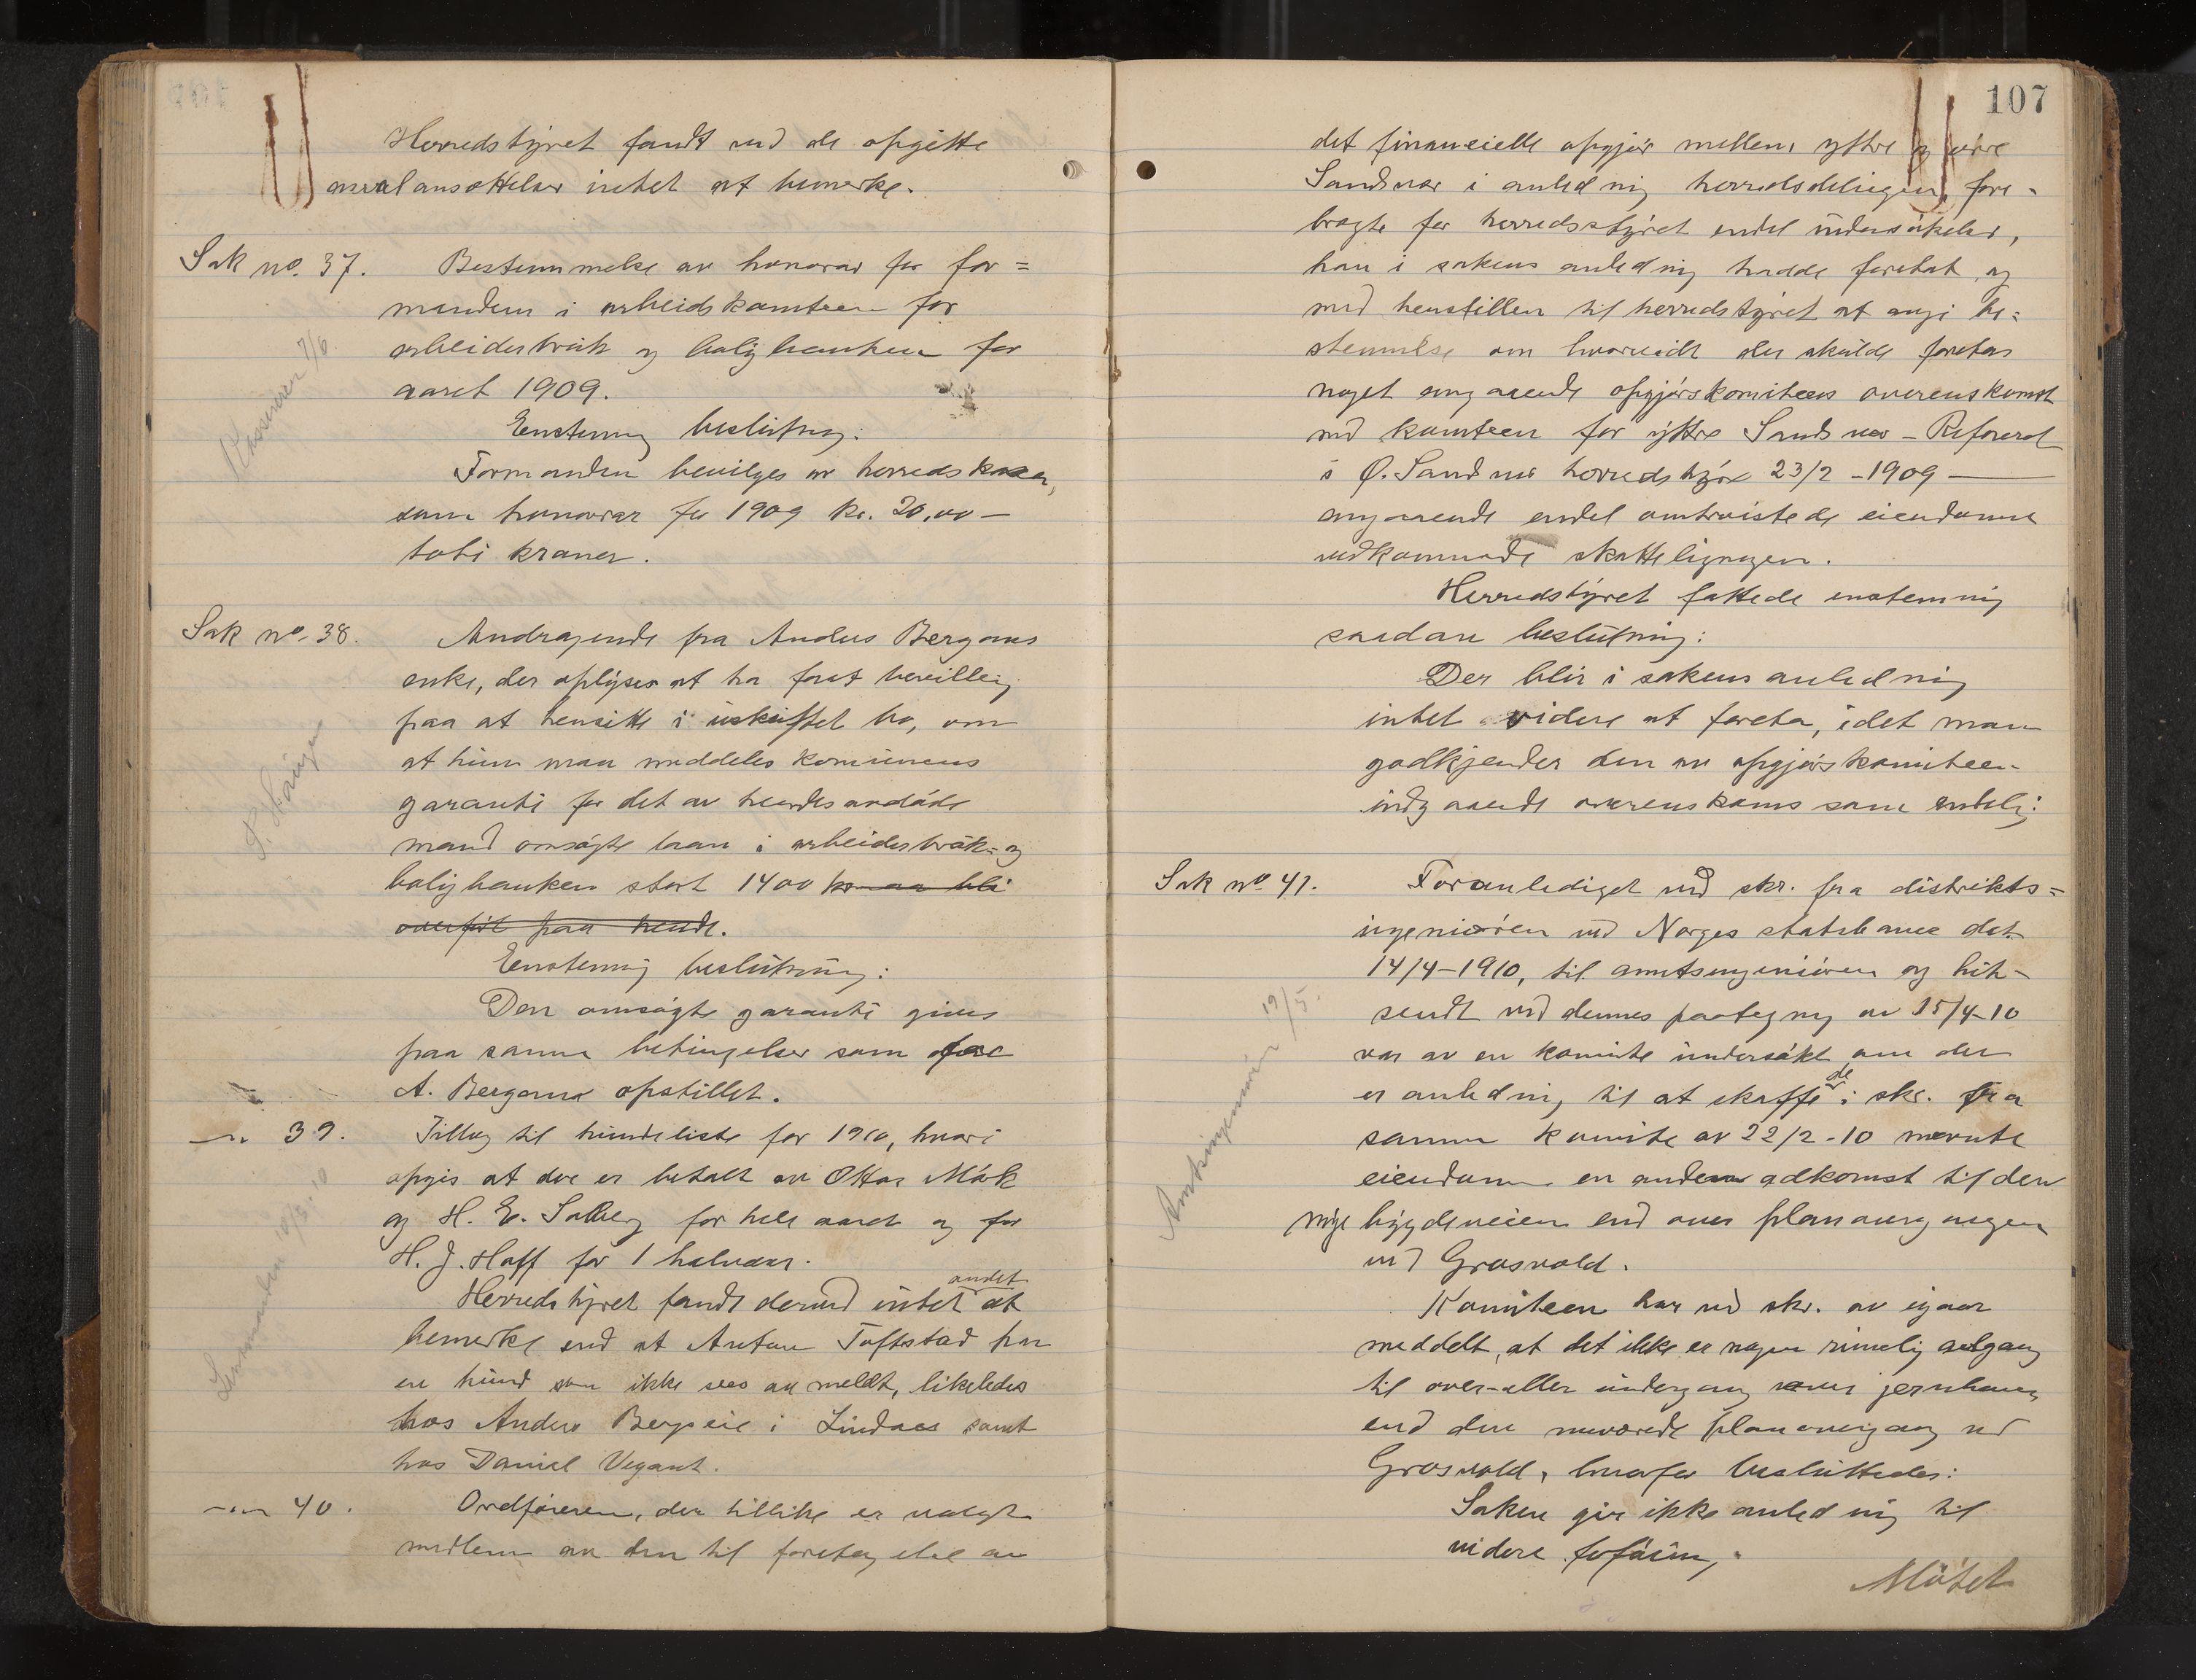 Herredstyret fandt ved de opgitte
ansættelser intet at bemerke.
Sak no. 37. Bestemmelse av honorar for for=
manden i arbeidskomiteen for
arbeiderbruk og boligbanken for
aaret 1909.
Kasserer 7/6.
Enstemmig beslutning:
Formanden bevilges av herredskassen,
som honorar for 1909 kr. 20,00 –
toti kroner.
Sak no. 38. Andragende fra Anders Bergans
enke, der oplyses at ha faat bevilling
paa at hensitte i uskiftet bo, om
at hun maa meddeles komunens
garanti for det av hendes avdøde
mand omsøgte laan i arbeiderbruk- og
boligbanken stort 1400 kr maa bli
overført paa hende.
Enstemmig beslutning:
Den omsøgte garanti gives
paa samme betingelser som for
A. Bergans opstillet.
—„— 39. Tillæg til hundeliste for 1910, hvori
opgis at der er betalt av Ottar Mørk
og H. E. Solberg for hele aaret og for
H. J. Hoff for 1 halvaar.
Lensmanden 10/5 10
Herredstyret fandt derved intet andet at
bemerke end at Anton Toftstad har
en hund som ikke sees anmeldt, likeledes
hos Anders Bergseie i Lindaas samt
hos Daniel Vegant.
—„— 40. Ordføreren, der tillike er valgt
medlem av den til foretagelse av
107
det financielle opgjør mellem yttre og øvre
Sandsvær i anledning herredsdelingen, fore-
bragte for herredsstyret endel undersøkelser,
han i sakens anledning hadde foretat, og
med henstillen til herredstyret at angi be=
stemmelse om hvorvidt der skulde foretas
noget angaaende opgjørskomiteens overenskomst
med komiteen for yttre Sandsvær – Referert
i Ø. Sandsvær herredstyre 23/2 – 1909 —
angaaende endel omtvistede eiendomme
vedkommende skatteligningen.
Herredstyret fattede enstemmig
saadan beslutning:
Der blir i sakens anledning
intet videre at foreta, idet man
godkjender den av opgjørskomiteen
indgaaende overenskoms som endelig.
Sak no. 41. Foranlediget ved skr. fra distrikts=
ingeniøren ved Norges statsbaner dat.
14/4–1910, til amtsingeniøren og hit-
sendt med dennes paategning av 15/4–10
var av en komite undersøkt om der
er anledning til at skaffe de i skr. fra
samme komite av 22/2–10 nævnte
eiendomme en anden adkomst til den
nye bygdeveien end over planovergangen
ved Grosvold.
Amtsingeniør 19/5.
Komiteen har ved skr. av igaar
meddelt, at det ikke er nogen rimelig adgang
til over- eller undergang over jernbanen
end den nuværende planovergang ved
Grosvold, hvorfor besluttedes:
Saken gir ikke anledning til
videre føføining.
Møtet